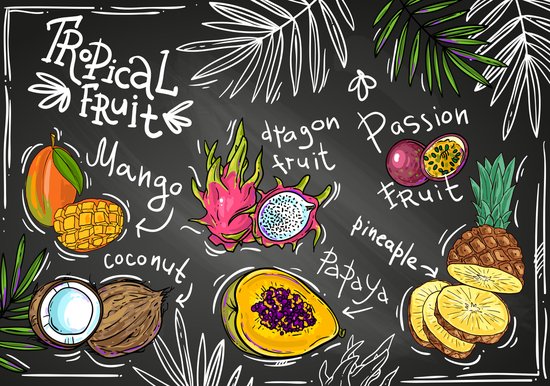 TRopical
fRuit
Mango
dragon
fruit
Passion
fRuit
coconut
papaya
pineapple